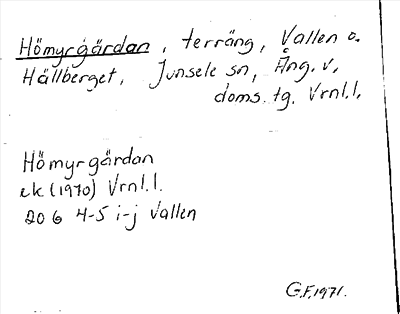 Hömyrgärdan, terräng, Vallen o.
Hällberget, Junsele sn, Ång. v.
doms. tg. Vrnl.l.
Hömyrgärdan
ek (1970) Vrnl.l.
20 G 4-5 i-j Vallen
G.F. 1971.